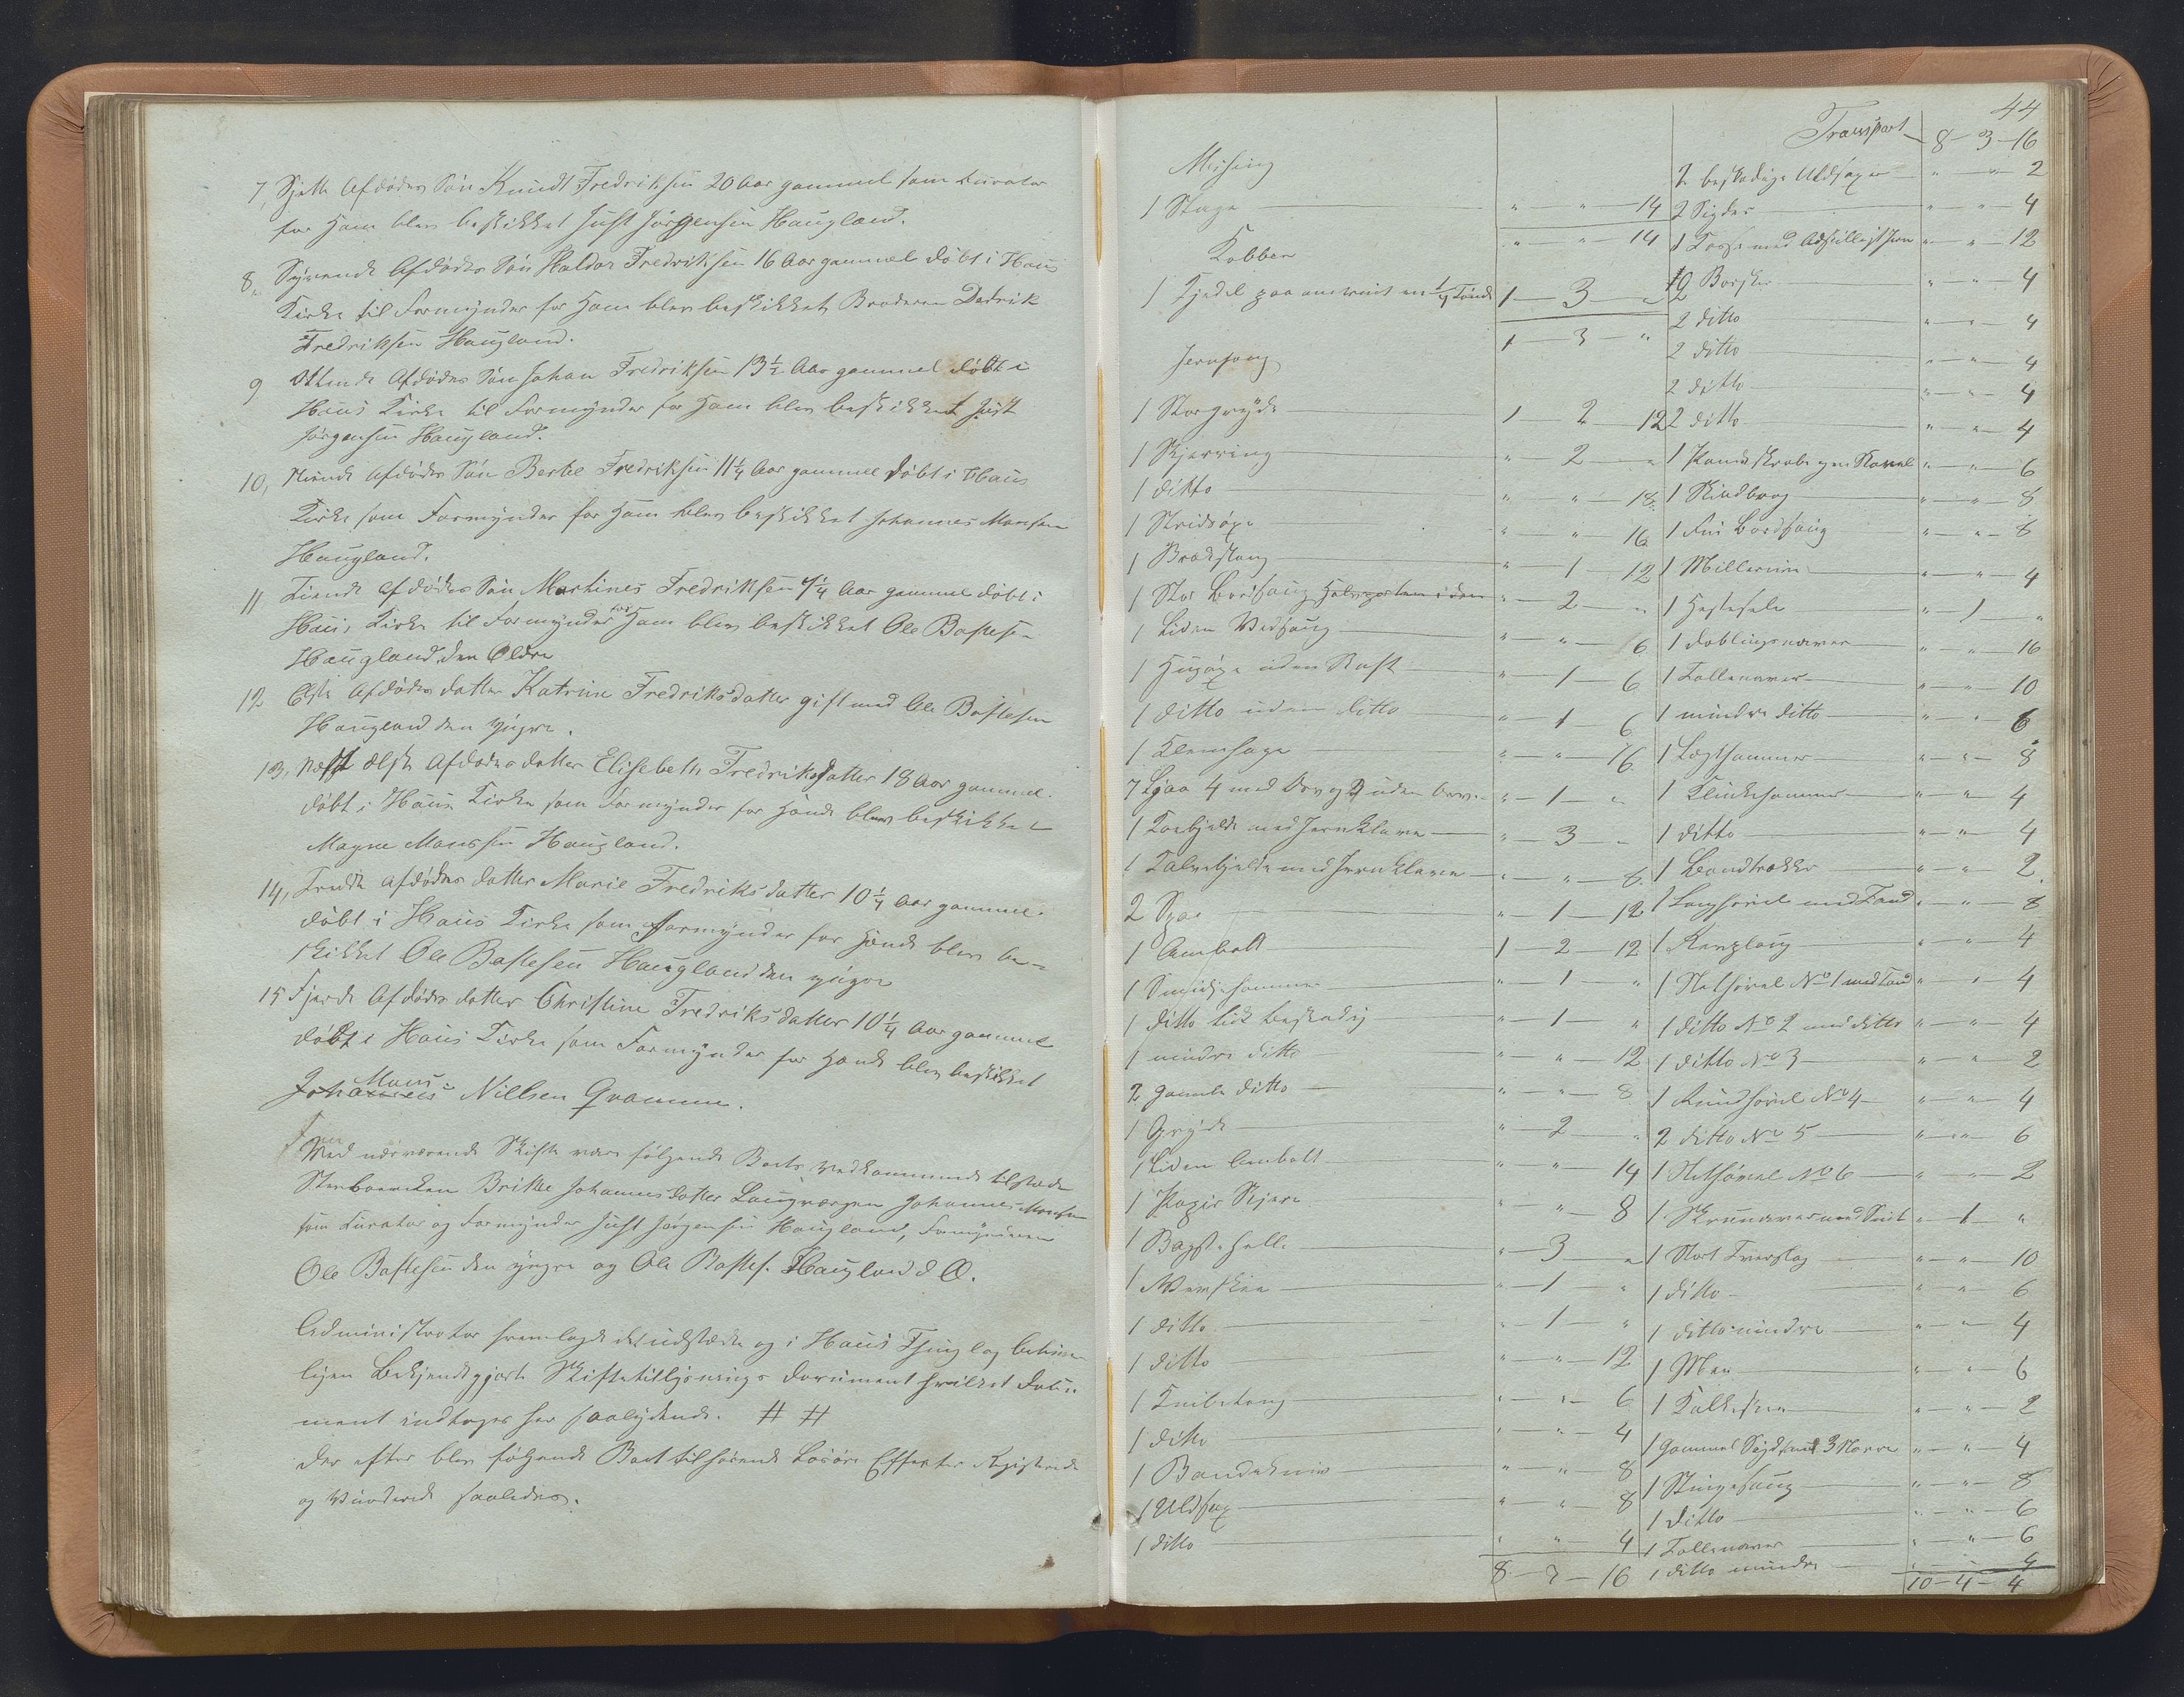 7, Sjette Afdødes Søn Knudt Fredriksen 20 Aar gammel som Kurator
for Ham blev beskikket Just Jørgensen Haugland.
8, Syvende Afdødes Søn Haldor Fredriksen 16 Aar gammel døbt i Haus
Kirke til Formynder for Ham blev beskikket Broderen Didrik
Fredriksen Haugland.
9 Ottende Afdødes Søn Johan Fredriksen 13 1/2 Aar gammel døbt i
Haus Kirke til Formynder for Ham blev beskikket Just
Jørgensen Haugland.
10, Niende Afdødes Søn Bertel Fredriksen 11 1/4 Aar gammel døbt i Haus
Kirke som Formynder for Ham blev beskikket Johannes Monsen
Haugland.
11 Tiende Afdødes Søn Martines Fredriksen 7 1/4 Aar gammel døbt i
Haus Kirke til Formynder for Ham blev beskikket Ole Bottess-
Haugland den Eldre
12 Elste Afdødes datter Katrine Fredriksdatter gift med Ole Bottesen
Haugland den yngre.
13, Nest elste Afdødes datter Elisebeth Fredriksdatter 18 Aar gammel.
døbt i Haus Kirke som Formynder for Hende blev beskikket
Magne Monssen Haugland.
14, Tredie Afdødes datter Marie Fredriksdatter 10 1/4 Aar gammel.
døbt i Haus Kirke som Formynder for Hende blev be-
skikket Ole Bottesen Haugland den yngre
15 Fjerde Afdødes datter Christine Fredriksdatter 10 1/4 Aar gammel
døbt i Haus Kirke som Formynder for Hende blev beskikket
Mons
Johannes Nillsen Gramme.
Ved nærværende Skifte vare følgende Boets Vedkommende tilstæde
Sterboenken Britte Johannesdatter Laugværgen Johannes Monsen
som Kurator og Formynder Just Jørgensen Haugland, Formynderen
Ole Bottesen den yngre og Ole Bottes. Haugland d. Æ.
Administrator fremlagde det udstædte og i Haus Thinglag behørie-
ligen Bekjendtgjorte Skiftetillysnings Document hvilket Docu
ment indtages her saalydende. # #
Der efter blev følgende Boet tilhørende Løsøre Effecter Registerede
og Vurderede saaledes.
44
Messing
1 Stage " " 14
" " 14
Kobber
1 Kjedel paa omtrent en 1/4 Tønde 1 3 "
1 3 "
Jernfang
1 Stor gryde 1 2 12
1 Skjerring " 2 "
1 ditto " " 18
1 Stridøxe " " 16
1 Brækstang " 1 12
1 Stor Bordsaug " 2 "
1 Liden Vedsaug " " 6
1 Hugøxe uden Skaft " 1 6
1 ditto uden ditto " 1 6
1 Klemsage " " 16
7 Ljaa 4 med Orv og 2 uden Orv " 1 "
1 Koebjelde med Jernklave " 3 "
1 Kalvebjelde med Jernklave " " 8
2 Spae " 1 12
1 Ambolt 1 2 12
1 Smidjehammer " 1 "
1 ditto lidt beskadig " 1 "
1 mindre ditto " " 12
2 gamle ditto " " 8
1 Gryde " 2 "
1 Liden Ambolt " " 14
1 Papir Skjere " " 8
1 Bagstehelle " 3 "
1 " 1 "
1 ditto " 1 "
1 ditto " " 12
1 Knibetang " " 6
1 ditto " " 4
1 Baandekniv " " 8
1 Uldsax " " 8
1 ditto " " 4
8 3 16
Transport 8 3 16
2 beskadige Uldsaxer " " 2
2 Sigder " " 4
1 Kasse med Adskilligt Jern " " 12
2 " " 4
2 ditto " " 4
2 ditto " " 4
2 ditto " " 4
2 ditto " " 4
1 " " 6
1 " " 8
1 Fin Bordsaug " " 8
1 " " 4
1 Hestesele " 1 "
1 Doblingsnaver " " 16
1 Tollenaver " " 10
1 mindre ditto " " 6
1 Lægthammer " " 8
1 Klinkehammer " " 4
1 ditto " " 4
1 Baandtrækker " " 2
1 Langhøvel med Tand " " 8
1 " " 4
1 Slethøvel No 1 med Tand " " 4
1 ditto No 2 med ditto " " 4
1 ditto No 3 " " 2
1 Rundhøvel No 4 " " 4
2 ditto No 5 " " 6
1 Slethøvel No 6 " " 2
1 " 1 "
1 Stort Tverslag " " 10
1 ditto " " 6
1 ditto mindre " " 4
1 " " 6
1 " " 2
1 gammel Sigd med 3 Navre " " 4
1 Stingsaug " " 8
1 ditto " " 6
1 Tollenaver " " 6
1 ditto mindre " " 4
10 4 4